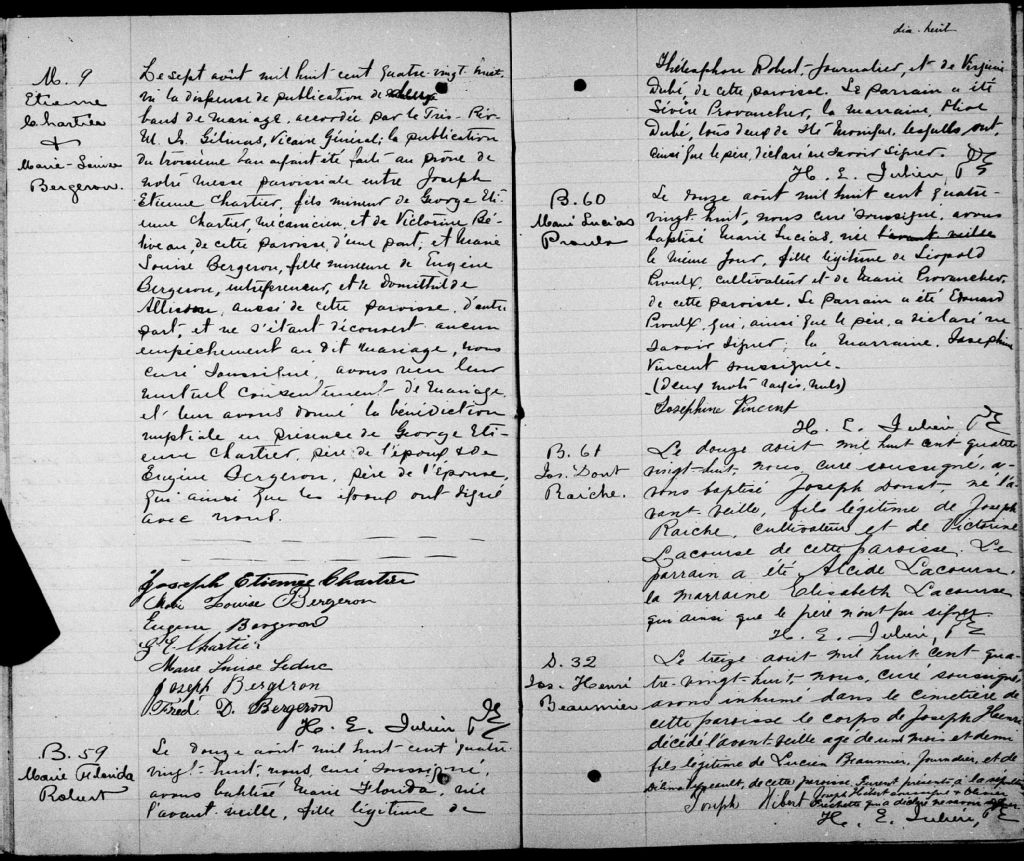 M. 9
Etienne
Chartier
&
Marie-Louise
Bergeron.
Le sept août mil huit cent quatre-vingt huit,
vu la dispense de publication de
bans de mariage, accordée par le Très-Rév.
M. Is. Gélinas, Vicaire Général; la publication
du troisième ban ayant été faite au prône de
notre messe paroissiale entre Joseph
Etienne Chartier, fils mineur de George Eti-
enne Chartier, mécanicien, et de Victorine Bé-
liveau, de cette paroisse d'une part, et Marie
Louise Bergeron, fille mineure de Eugène
Bergeron, entrepreneur, et de Domithilde
aussi de cette paroisse, d'autre
part, et ne s'étant découvert aucun
empêchement au dit mariage, nous
curé soussigné, avons reçu leur
mutuel consentement de mariage
et leur avons donné la bénédiction
nuptiale en présence de George Eti-
enne Chartier, père de l'époux & de
Eugène Bergeron, père de l'épouse,
qui ainsi que les époux ont signé
avec nous.
Joseph Etienne Chartier
Marie Louise Bergeron
Eugène Bergeron
G. E. Chartier
Marie Louise Leduc
Joseph Bergeron
Fred D. Bergeron
H. E. Julien, Ptre
B. 59
Marie Florida
Robert
Le douze août mil huit-cent quatre-
vingt-huit, nous, curé soussigné,
avons baptisé Marie Florida, née
l'avant-veille, fille légitime de
dix-huit
Thélesphore Robert, Journalier, et de Virginie
Dubé, de cette paroisse. Le Parrain a été
Sévère Provancher, la marraine, Olive
Dubé, tous deux de Ste Monique, lesquels ont,
ainsi que le père, déclaré ne savoir signer.
H. E. Julien, Ptre
B. 60
Marie Lucias
Proulx
Le douze août mil huit cent quatre-
vingt huit, nous curé soussigné, avons
baptisé Marie Lucias, née l'avant veille
le même jour, fille légitime de Léopold
Proulx, cultivateur et de Marie Provancher,
de cette paroisse. Le parrain a été Edouard
Proulx, qui, ainsi que le père, a déclaré ne
savoir signer; la marraine, Josephine
Vincent soussignée.
(deux mots rayés nuls)
Josephine Vincent
H. E. Julien Ptre
B. 61
Jos. Donat
Raiche.
Le douze août mil huit cent quatre
vingt-huit, nous, curé soussigné, a-
vons baptisé Joseph Donat, né l'a-
vant veille, fils légitime de Joseph
Raiche, cultivateur et de Victorine
Lacourse de cette paroisse. Le
parrain a été Alcide Lacourse,
la marraine Elisabeth Lacourse
qui ainsi que le père n'ont pu signer
H. E. Julien, Ptre
S. 32
Jos. Henri
Beaumier
Le treize août mil huit cent qua-
tre-vingt-huit nous, curé soussigné
avons inhumé dans le cimetière de
cette paroisse le corps de Joseph Henri
décédé l'avant veille agé de un mois et demi
fils légitime de Lucien Beaumier, Journalier, et de
de cette paroisse. Furent présents à la sépulture
Joseph Hébert soussigné & Olivier
Frechette qui a déclaré ne savoir signer
Joseph Hebert
H. E. Julien, Ptre